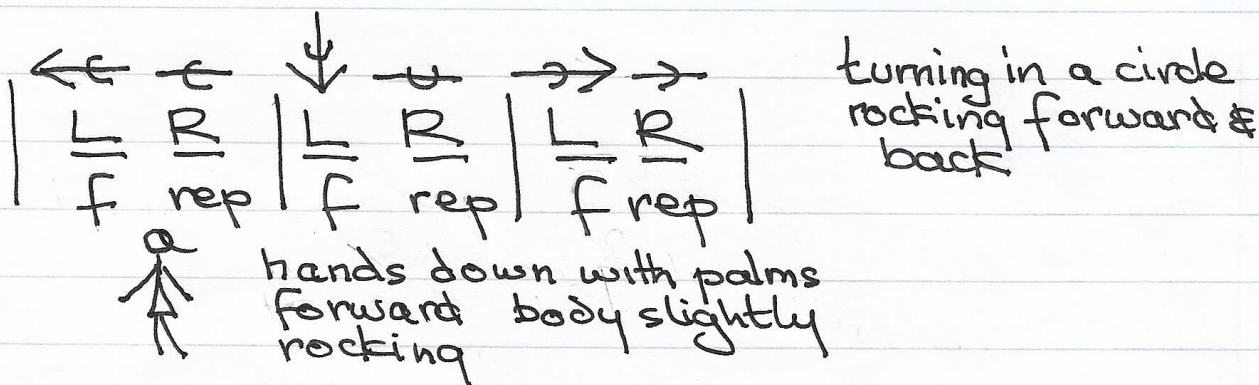 L R L R L R
f rep f rep f rep
turning in a circle
rocking forward &
back
hands down with palms
forward body slightly
rocking